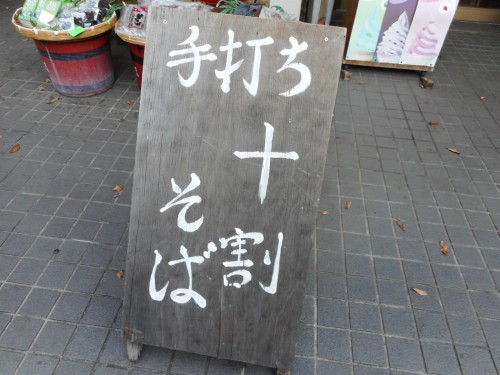 手打ち
十割
そば